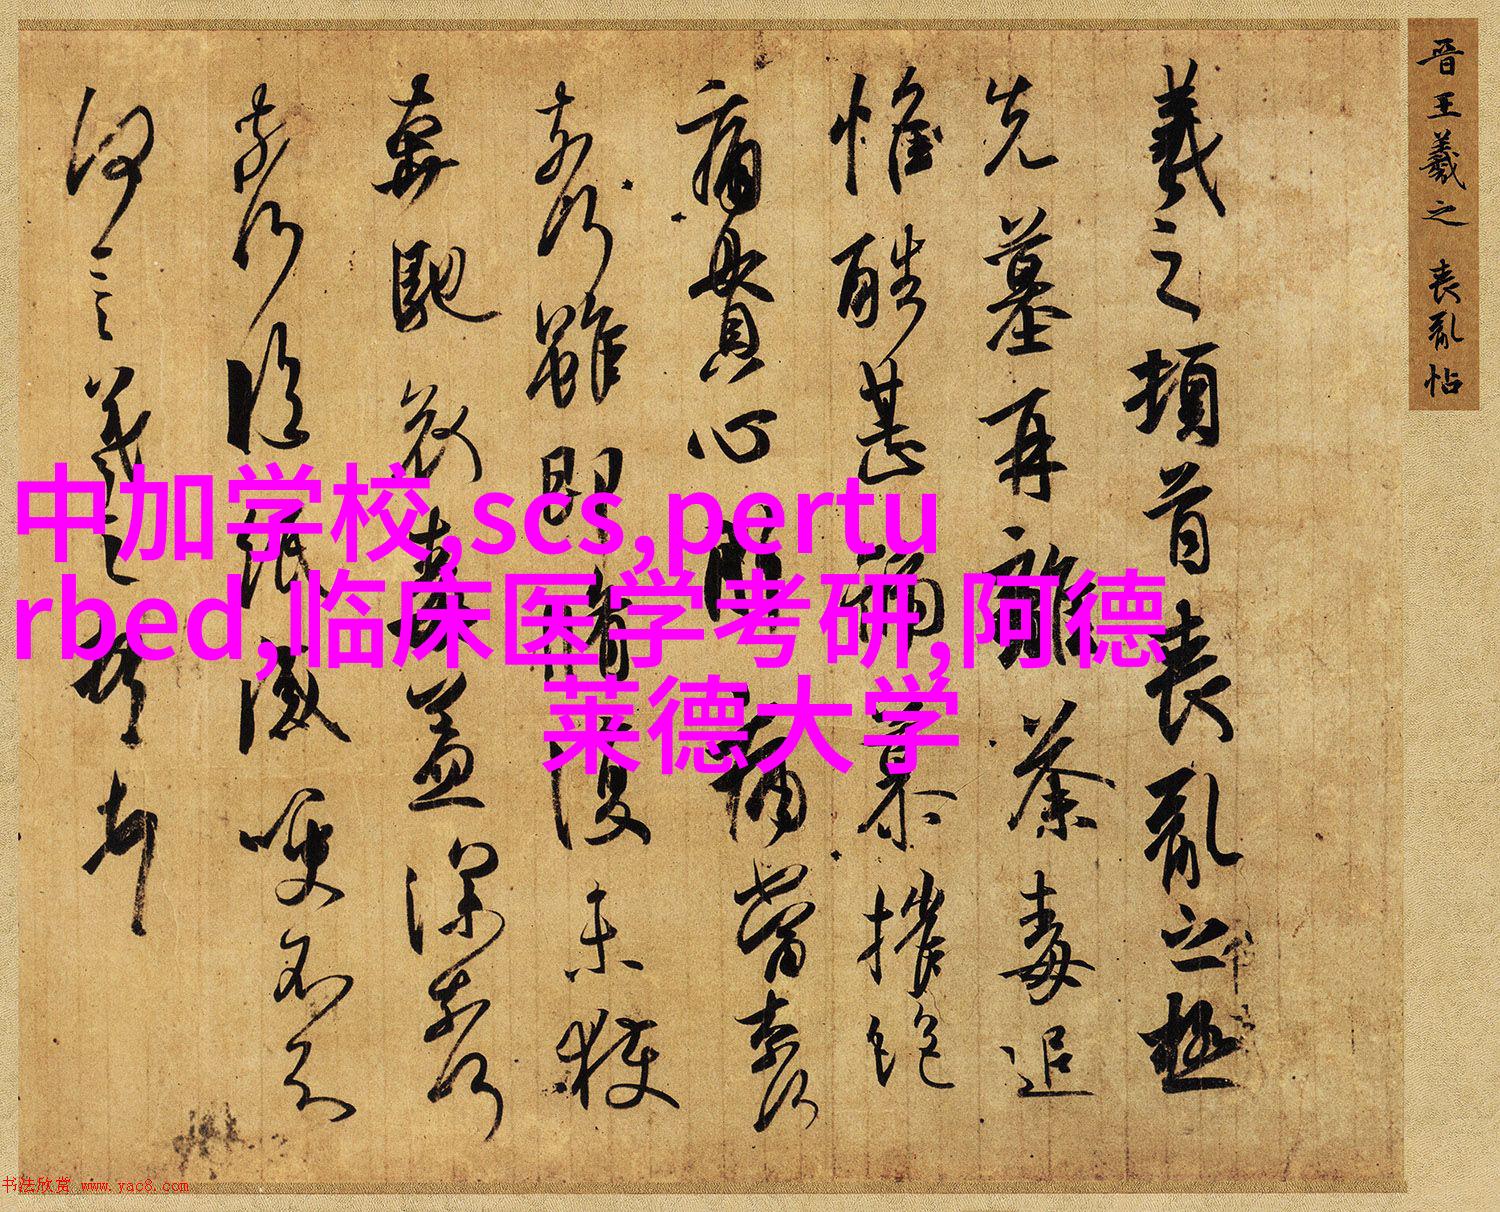 晋王羲之 丧乱帖
羲之頓首喪亂之極
先墓再離荼毒追
惟酷甚號慕摧絕
痛貫心肝痛當奈何
奈何雖即脩復未獲
奔馳哀毒益深奈何
奈何臨紙感哽不知
何言羲之頓首
中加学校,scs,pertu
rbed,临床医学考研,阿德
莱德大学
书法欣赏 www.yac8.com